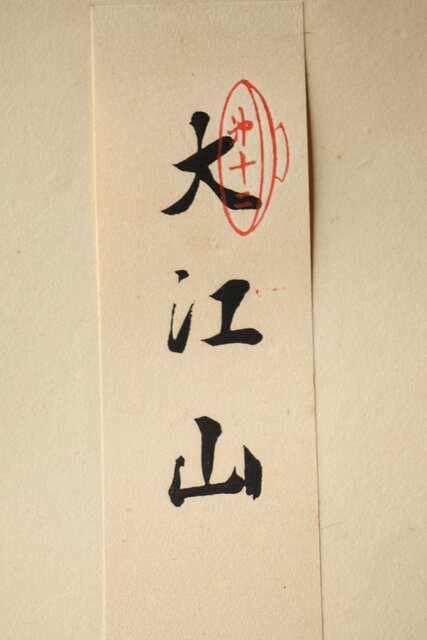 大江山
第十二